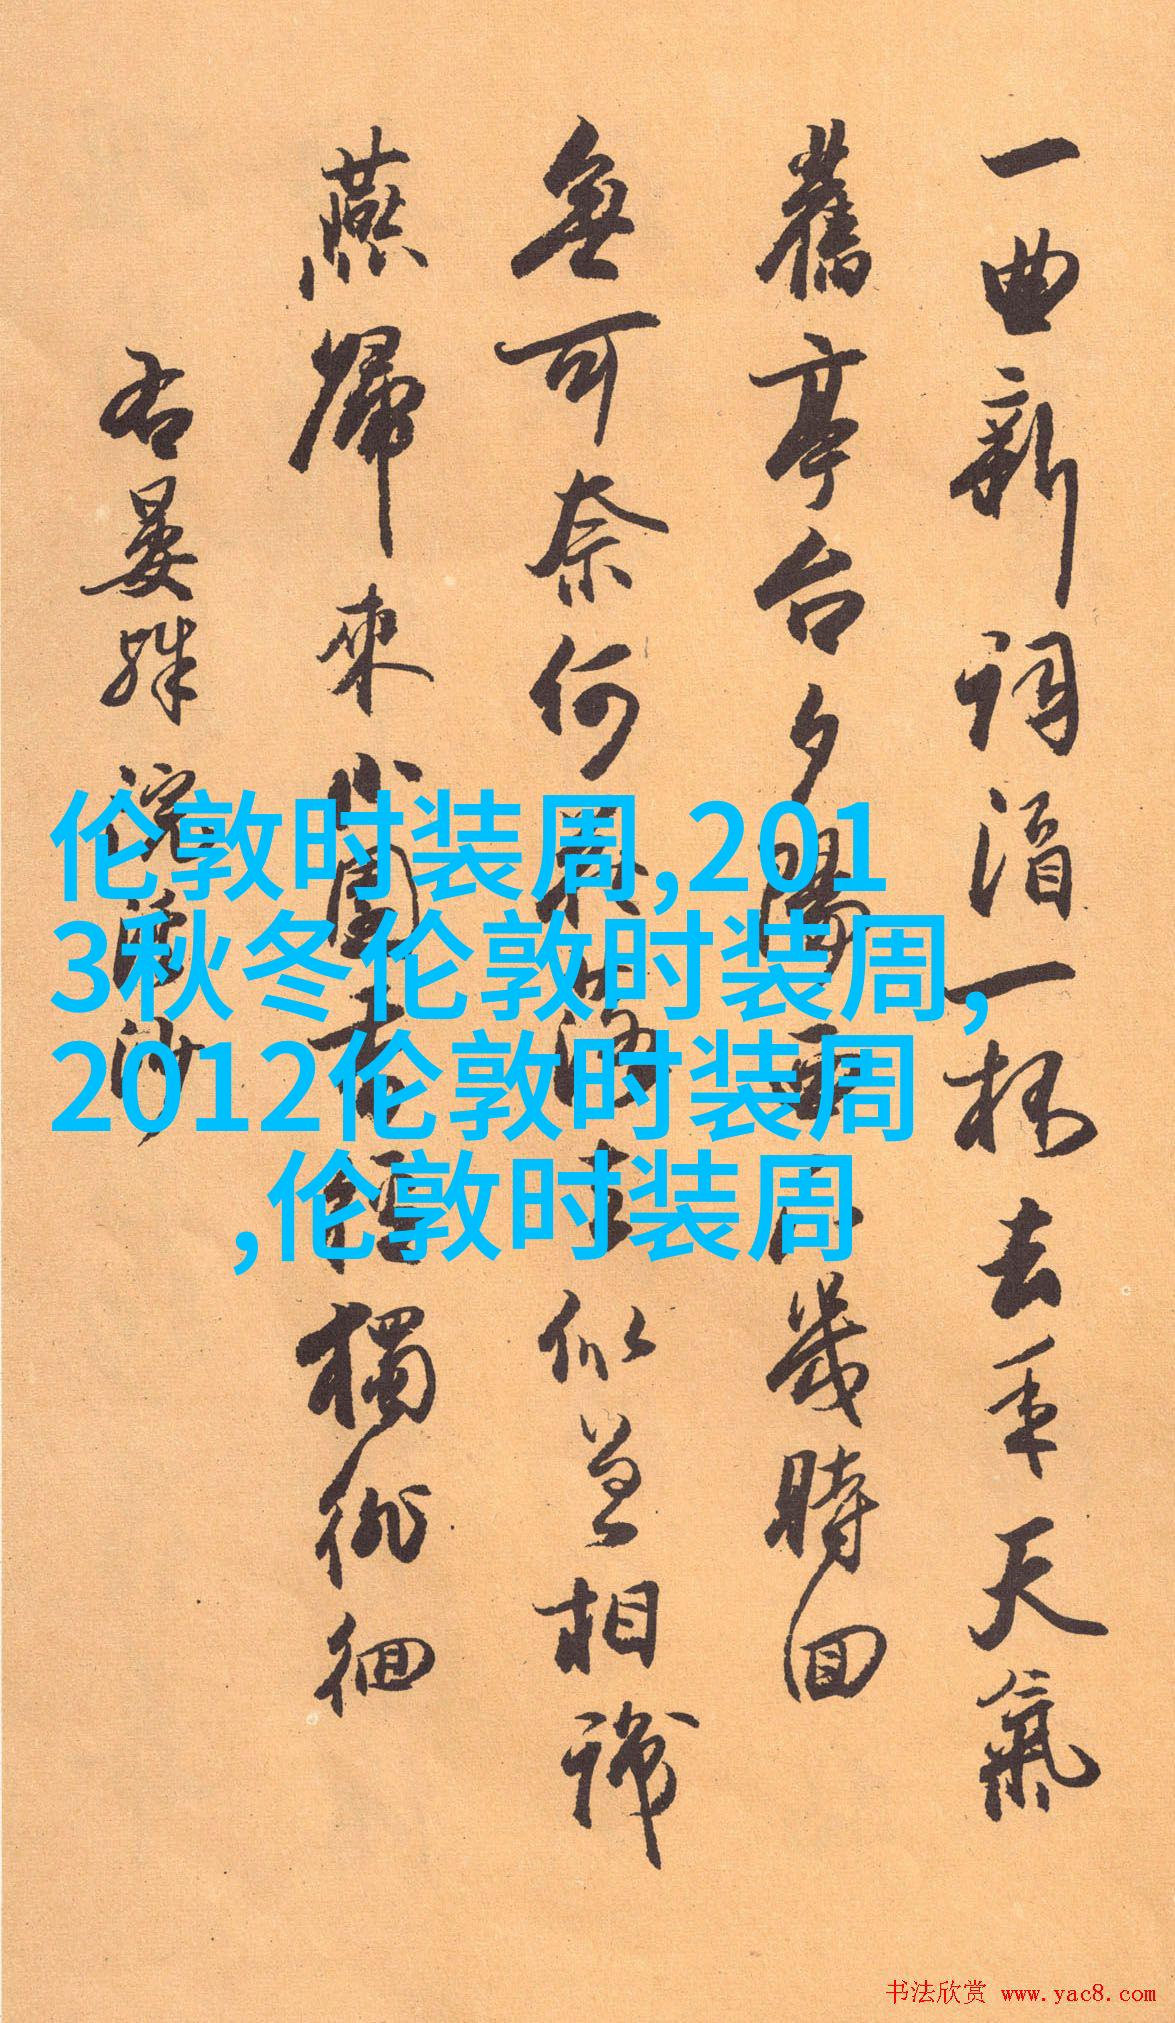 一曲新詞酒一杯去年天氣
舊亭台夕陽西下幾時回
無可奈何花落去似曾相識
燕歸來小園香徑獨徘徊
右晏殊浣溪沙
伦敦时装周,201
3秋冬伦敦时装周,
2012伦敦时装周
,伦敦时装周
书法欣赏 www.yac8.com